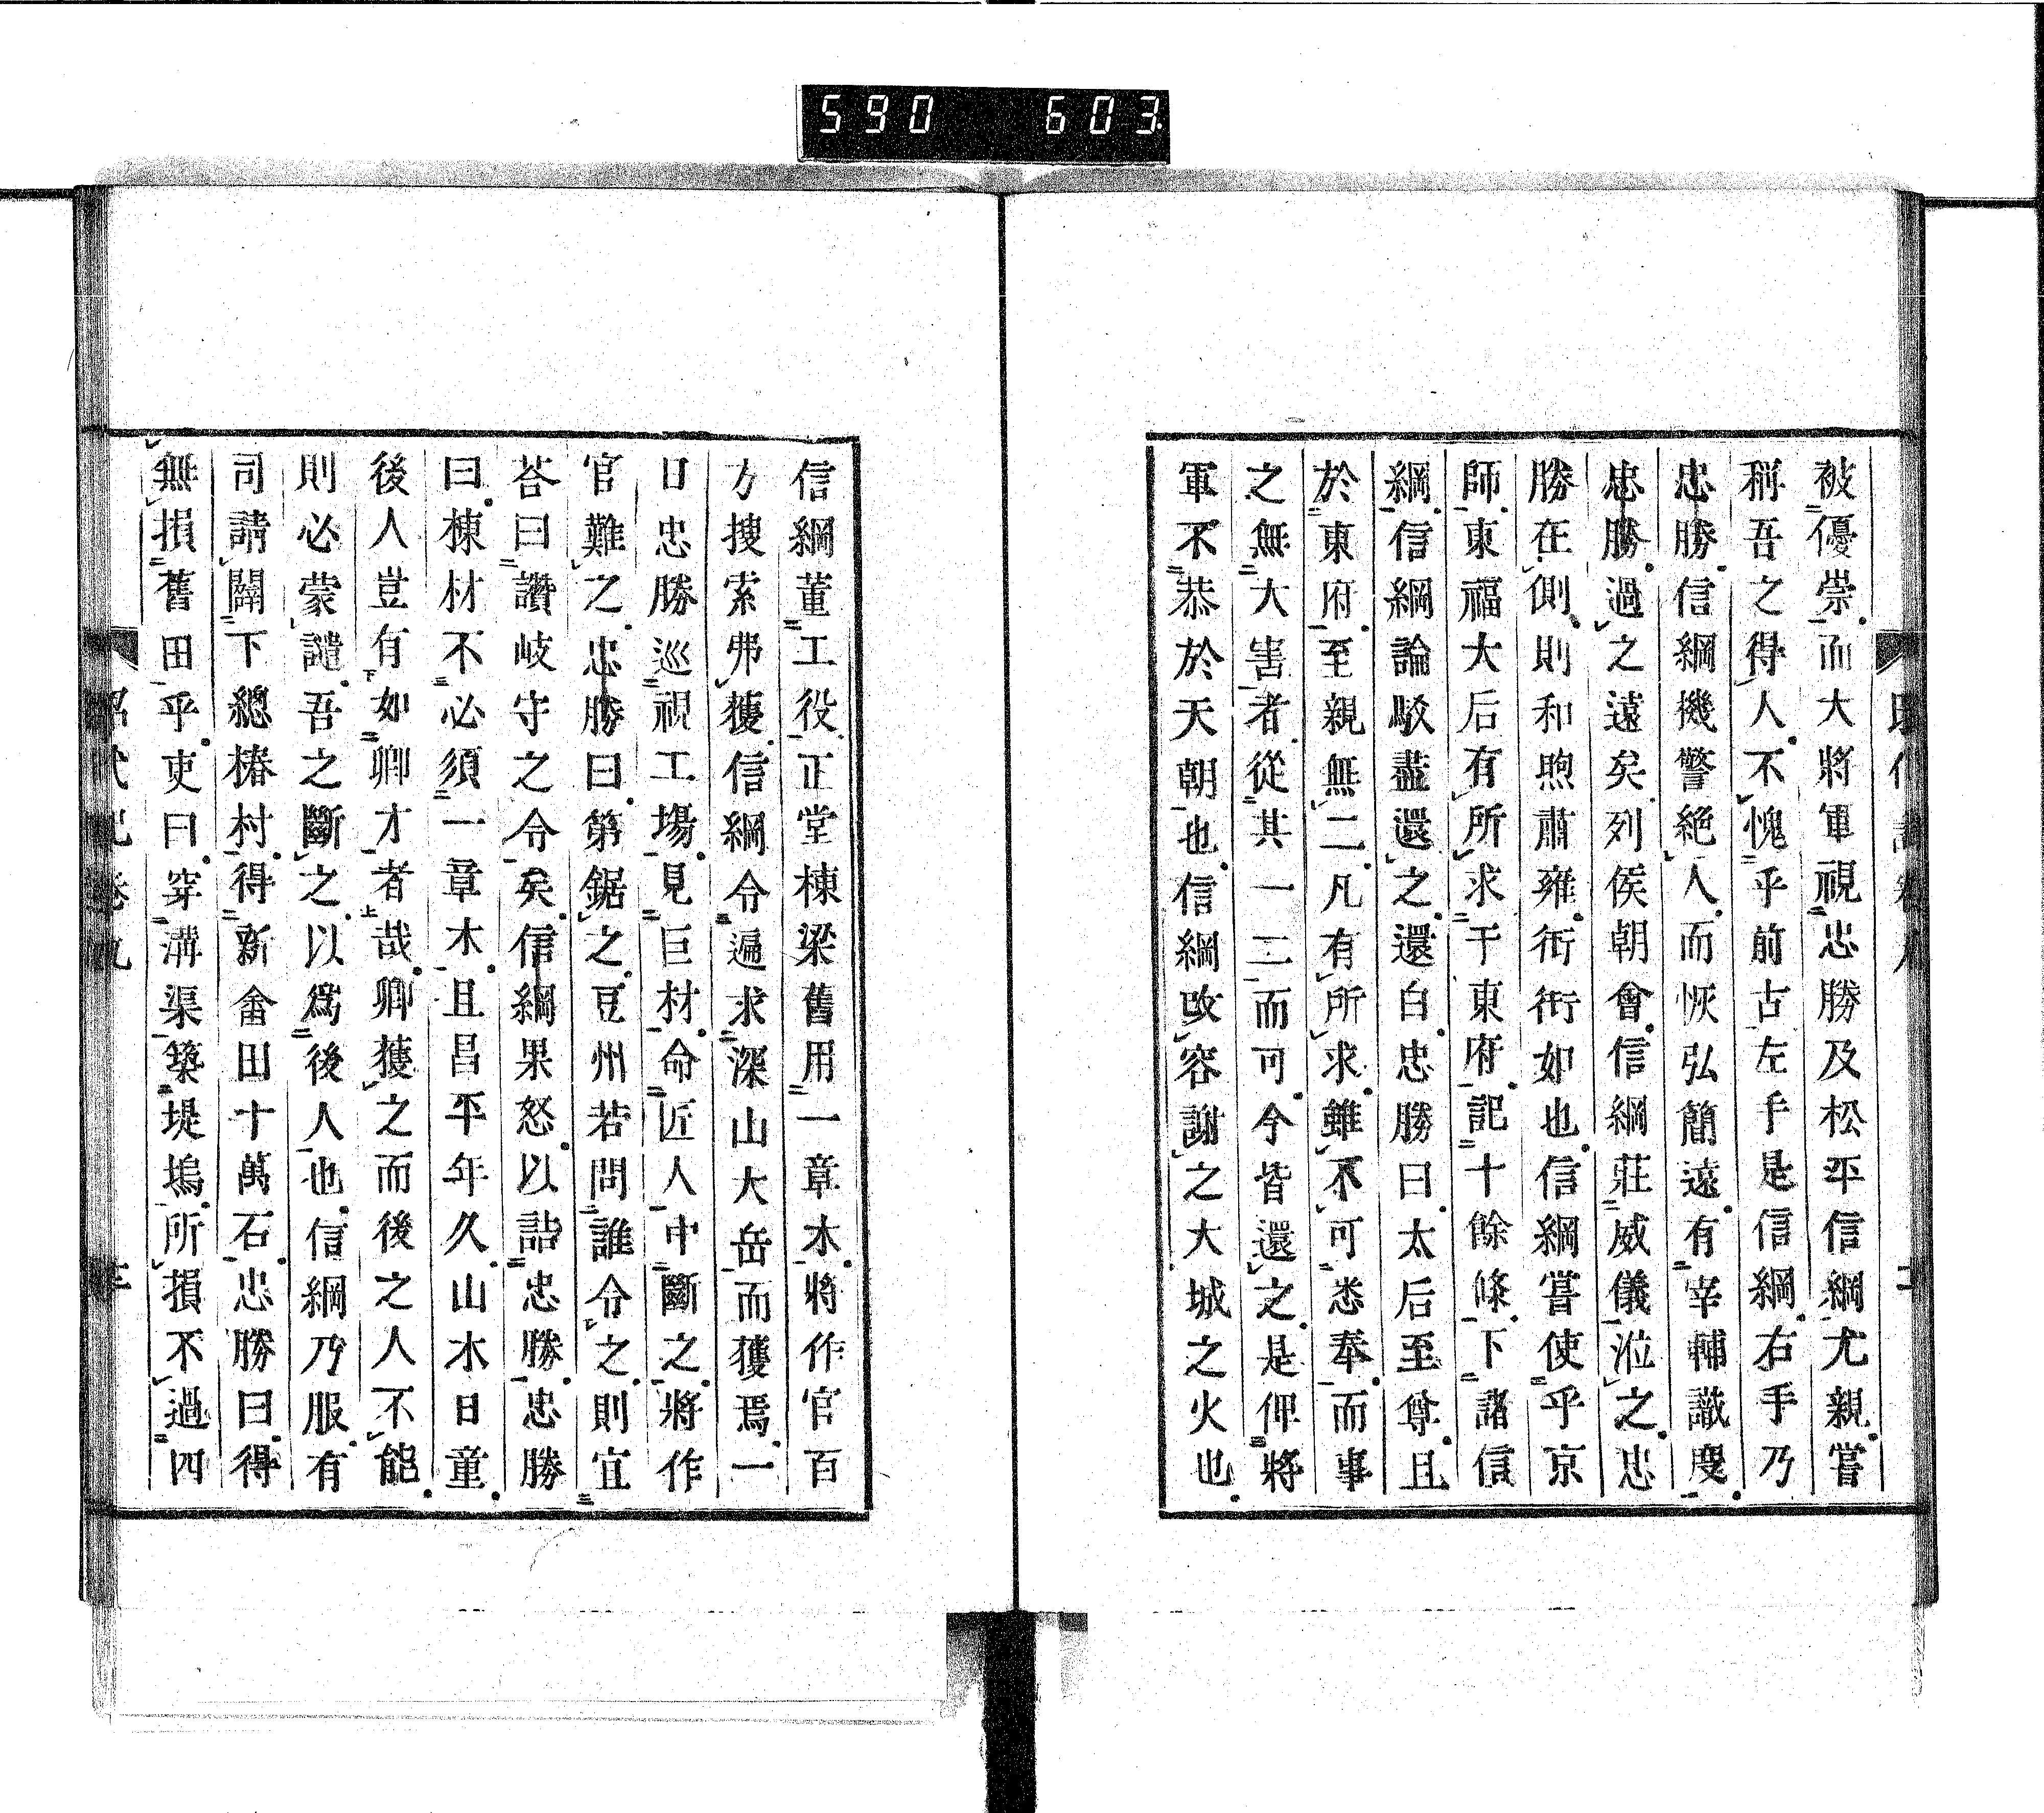 590 603
被優崇而大將軍視忠勝及松平信綱尤親嘗
稱吾之得人不愧乎前古左手是信綱右手乃
忠勝信綱機警絕人而恢弘簡遠有宰輔識度
忠勝過之遠矣列侯朝會信綱莊威儀涖之忠
勝在側則和煦肅雍衎衎如也信綱嘗使乎京
師東福大后有所求于東府記十餘條下諸信
綱信綱論駁盡還之還白忠勝曰太后至尊且
於東府至親無二凡有所求雖不可悉奉而事
之無大害者從其一二而可今皆還之是俾將
軍不恭於天朝也信綱改容謝之大城之火也
信綱董工役正堂棟梁舊用一章木將作官百
方搜索弗獲信綱令遍求深山大岳而獲焉一
日忠勝巡視工場見巨材命匠人中斷之將作
官難之忠勝曰第鋸之豆州若問誰令之則宜
荅曰讚岐守之令矣信綱果怒以詰忠勝忠勝
曰棟材不必須一章木且昌平年久山木日童
後人豈有如卿才者哉卿獲之而後之人不能
則必蒙譴吾之斷之以爲後人也信綱乃服有
司請闢下總椿村得新畬田十萬石忠勝曰得
無損舊田乎吏曰穿溝渠築堤塢所損不過四